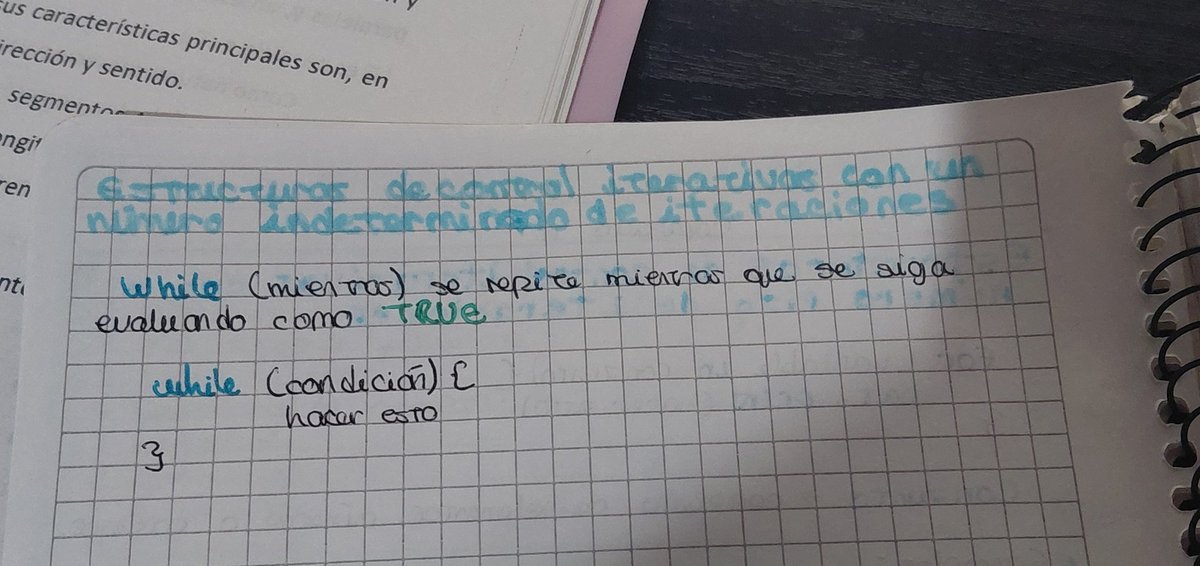 us características principales son, en
irección y sentido.
segmento
ren
Estructuras de control iterativas con un
número indeterminado de iteraciones
while (mientras) se repite mientras que se siga
evaluando como TRUE
while (condición) {
hacer esto
}